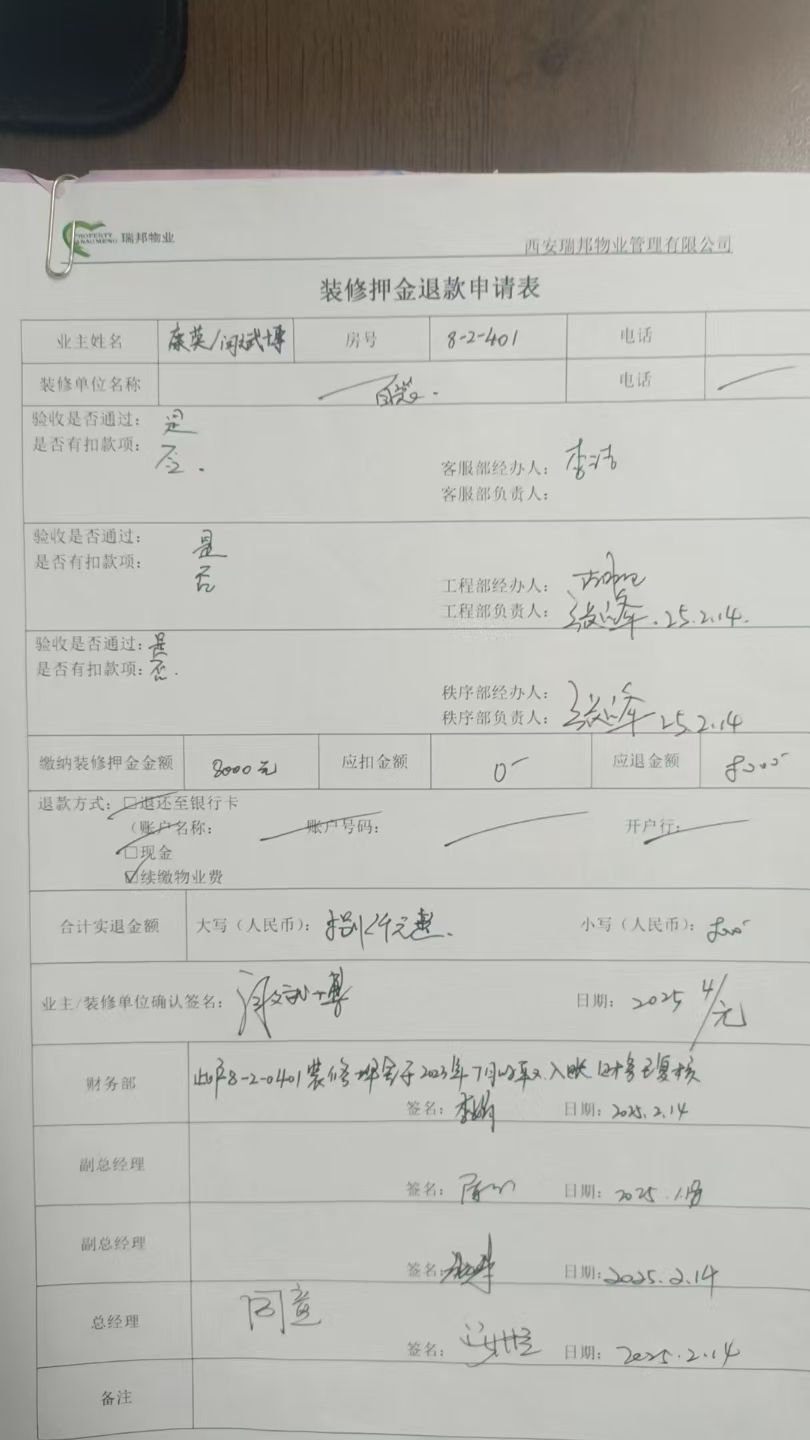 瑞邦物业
西安瑞邦物业管理有限公司
装修押金退款申请表
业主姓名 康英/闵斌博 房号 8-2-401 电话
装修单位名称 自装 电话
验收是否通过: 是
是否有扣款项: 否.
客服部经办人: 李洁
客服部负责人:
验收是否通过: 是
是否有扣款项: 否
工程部经办人:
工程部负责人: 25.2.14.
验收是否通过: 是
是否有扣款项: 否.
秩序部经办人:
秩序部负责人: 25.2.14
缴纳装修押金金额 8000元 应扣金额 0 应退金额 8000
退款方式: □退还至银行卡
(账户名称: 账户号码: 开户行:
□现金
☑续缴物业费
合计实退金额 大写(人民币): 捌仟元整. 小写(人民币): 8000
业主/装修单位确认签名: 日期: 2025
财务部 此户8-2-0401装修押金于2023年7月收取入账 财务已复核
签名: 日期: 2025.2.14
副总经理
签名: 日期: 2025.
副总经理
签名: 日期: 2025.2.14
总经理 同意
签名: 日期: 2025.2.14
备注